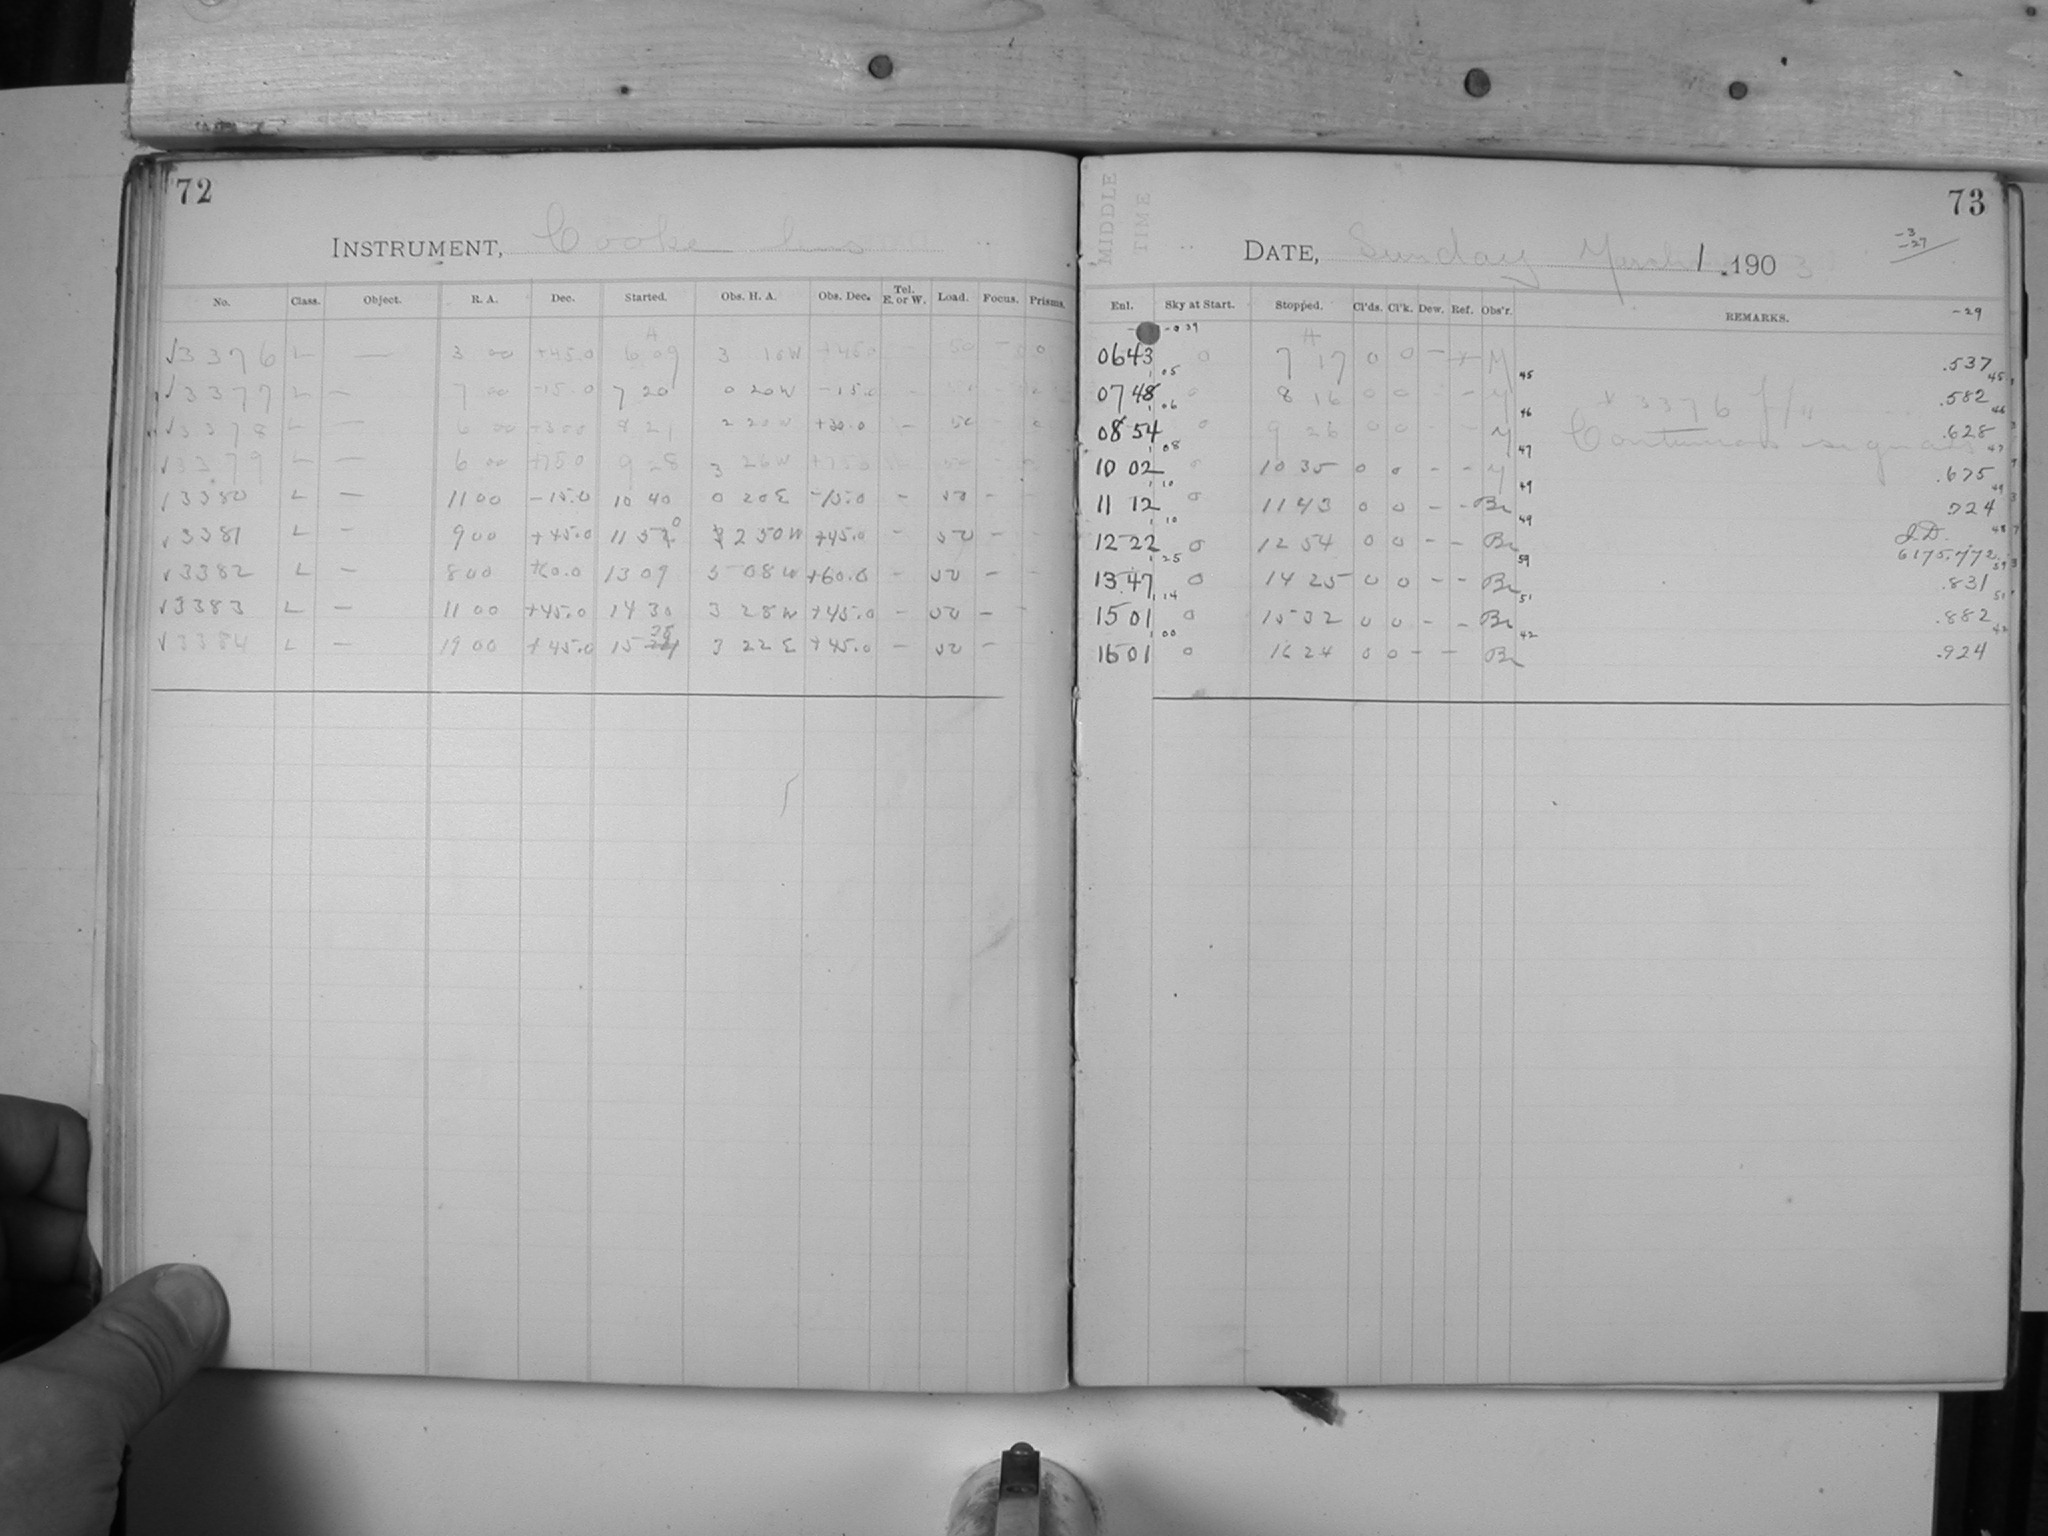 72
INSTRUMENT, Cooke lens
No. Class. Object. R. A. Dec. Started. Obs. H. A. Obs. Dec. Tel. E. or W. Load. Focus. Prisms.
√3376 L — 3 00 +45.0 6 09 3 10W +45.0 — 50 — 0
√3377 L — 7 00 -15.0 7 20 0 20W -15.0 —
√3378 L — 6 00 +30.0 8 21 2 20W +30.0 — 50
√3379 L — 6 00 +75.0 9 28 3 26W +75.0 50
√3380 L — 11 00 -15.0 10 40 0 20E -15.0 — 50 — -
√3381 L — 9 00 +45.0 11 50 2 50W +45.0 — 50 — -
√3382 L — 8 00 +60.0 13 09 5 08W +60.0 — 50 — -
√3383 L — 11 00 +45.0 14 30 3 28W +45.0 — 50 — -
√3384 L — 19 00 +45.0 15 38 3 22E +45.0 — 50 —
MIDDLE TIME
73
DATE, Sunday March 1 1903
-3
-27
-29
Enl. Sky at Start. Stopped. Cl'ds. Cl'k. Dew. Ref. Obs'r. REMARKS.
-039
06 43 0 7 17 0 0 — + M .537
05 45 45
07 48 0 8 16 0 0 - - M √3376 f/w .582
06 46 46
08 54 0 9 26 0 0 - - M Continuous signals .628
08 47 47
10 02 0 10 35 0 0 - - M .675
10 49 49
11 12 0 11 43 0 0 - - Br .724
10 49 48
12 22 0 12 54 0 0 - - Br J.D. 6175.772
25 59 59
13 47 0 14 25 0 0 - - Br .831
14 51 51
15 01 0 15 32 0 0 - - Br .882
00 42 42
16 01 0 16 24 0 0 - - Br .924